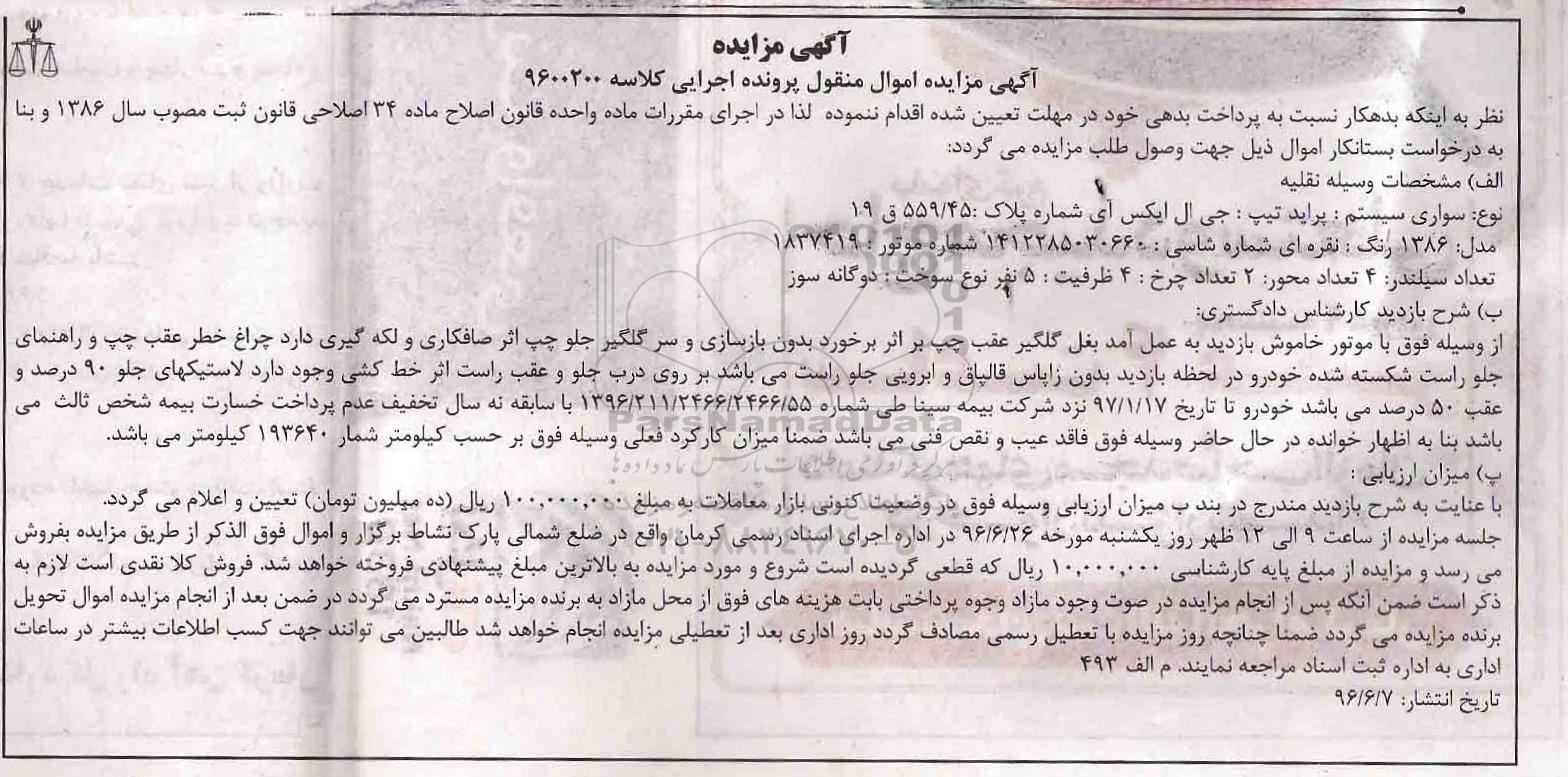 آگهی مزایده
آگهی مزایده اموال منقول پرونده اجرایی کلاسه ۹۶۰۰۲۰۰
نظر به اینکه بدهکار نسبت به پرداخت بدهی خود در مهلت تعیین شده اقدام ننموده لذا در اجرای مقررات ماده واحده قانون اصلاح ماده ۳۴ اصلاحی قانون ثبت مصوب سال ۱۳۸۶ و بنا
به درخواست بستانکار اموال ذیل جهت وصول طلب مزایده می گردد:
الف) مشخصات وسیله نقلیه
نوع: سواری سیستم : پراید تیپ : جی ال ایکس آی شماره پلاک :۵۵۹/۴۵ ق ۱۹
مدل: ۱۳۸۶ رنگ : نقره ای شماره شاسی : ۱۴۱۲۲۸۵۰۳۰۶۶۰ شماره موتور : ۱۸۳۷۴۱۹
تعداد سیلندر: ۴ تعداد محور: ۲ تعداد چرخ : ۴ ظرفیت : ۵ نفر نوع سوخت : دوگانه سوز
ب) شرح بازدید کارشناس دادگستری:
از وسیله فوق با موتور خاموش بازدید به عمل آمد بغل گلگیر عقب چپ بر اثر برخورد بدون بازسازی و سر گلگیر جلو چپ اثر صافکاری و لکه گیری دارد چراغ خطر عقب چپ و راهنمای
جلو راست شکسته شده خودرو در لحظه بازدید بدون زاپاس قالپاق و ابرویی جلو راست می باشد بر روی درب جلو و عقب راست اثر خط کشی وجود دارد لاستیکهای جلو ۹۰ درصد و
عقب ۵۰ درصد می باشد خودرو تا تاریخ ۹۷/۱/۱۷ نزد شرکت بیمه سینا طی شماره ۱۳۹۶/۲۱۱/۲۴۶۶/۲۴۶۶/۵۵ با سابقه نه سال تخفیف عدم پرداخت خسارت بیمه شخص ثالث می
باشد بنا به اظهار خوانده در حال حاضر وسیله فوق فاقد عیب و نقص فنی می باشد ضمنا میزان کارکرد فعلی وسیله فوق بر حسب کیلومتر شمار ۱۹۳۶۴۰ کیلومتر می باشد.
پ) میزان ارزیابی :
با عنایت به شرح بازدید مندرج در بند ب میزان ارزیابی وسیله فوق در وضعیت کنونی بازار معاملات به مبلغ ۱۰۰,۰۰۰,۰۰۰ ریال (ده میلیون تومان) تعیین و اعلام می گردد.
جلسه مزایده از ساعت ۹ الی ۱۲ ظهر روز یکشنبه مورخه ۹۶/۶/۲۶ در اداره اجرای اسناد رسمی کرمان واقع در ضلع شمالی پارک نشاط برگزار و اموال فوق الذکر از طریق مزایده بفروش
می رسد و مزایده از مبلغ پایه کارشناسی ۱۰,۰۰۰,۰۰۰ ریال که قطعی گردیده است شروع و مورد مزایده به بالاترین مبلغ پیشنهادی فروخته خواهد شد. فروش کلا نقدی است لازم به
ذکر است ضمن آنکه پس از انجام مزایده در صوت وجود مازاد وجوه پرداختی بابت هزینه های فوق از محل مازاد به برنده مزایده مسترد می گردد در ضمن بعد از انجام مزایده اموال تحویل
برنده مزایده می گردد ضمنا چنانچه روز مزایده با تعطیل رسمی مصادف گردد روز اداری بعد از تعطیلی مزایده انجام خواهد شد طالبین می توانند جهت کسب اطلاعات بیشتر در ساعات
اداری به اداره ثبت اسناد مراجعه نمایند. م الف ۴۹۳
تاریخ انتشار: ۹۶/۶/۷
ParsNamadData